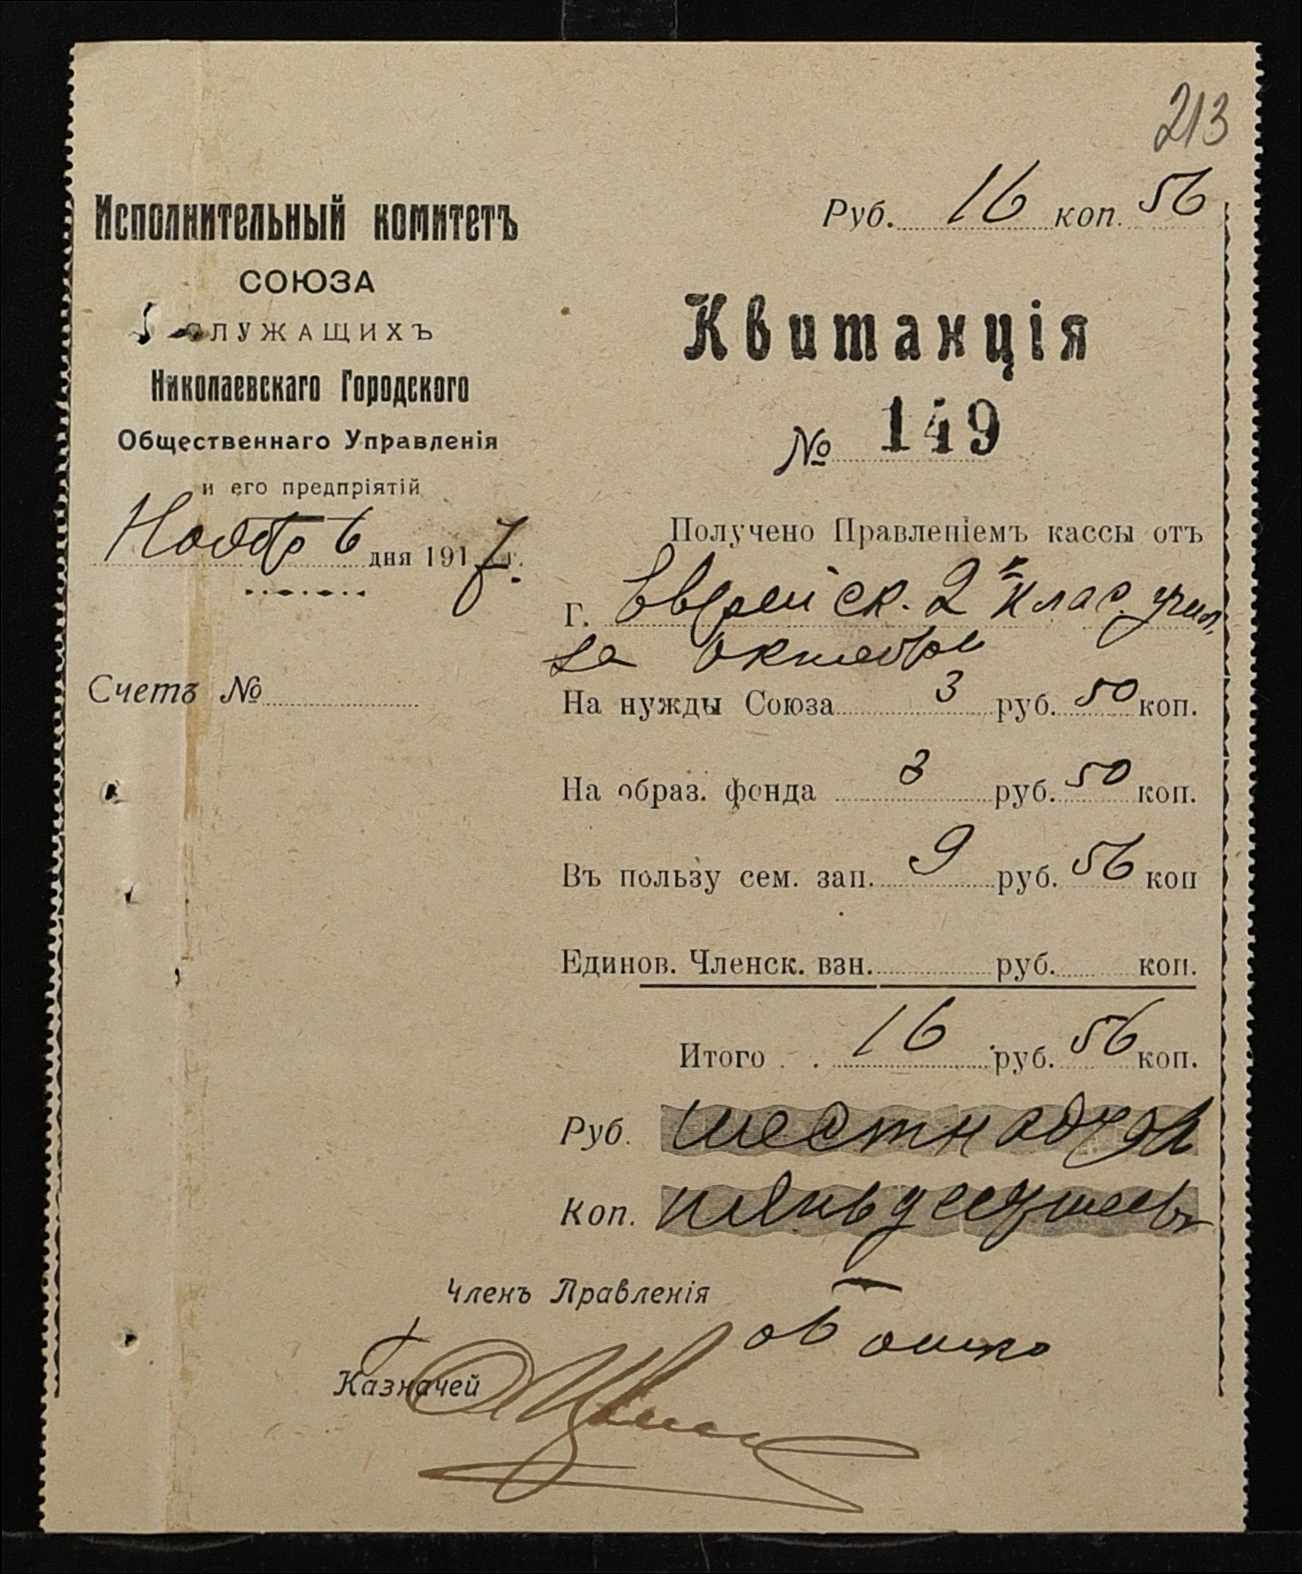 213
Исполнительный комитетъ
СОЮЗА
СЛУЖАЩИХЪ
Николаевскаго Городского
Общественнаго Управленія
и его предпріятій
Ноября 6 дня 1917 г.
Счетъ №
Руб. 16 коп. 56
Квитанція
№ 149
Получено Правленіемъ кассы отъ
Г. Еврейск. 2х клас. учил.
за октябрь
На нужды Союза 3 руб. 50 коп.
На образ. фонда 3 руб. 50 коп.
Въ пользу сем. зап. 9 руб. 56 коп
Единов. Членск. взн. руб. коп.
Итого . . 16 руб. 56 коп.
Руб. шестнадца
Коп. пятьдесят шесть
Членъ Правленія
Казначей